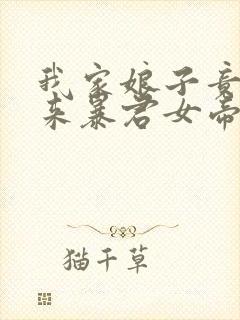 我家娘子竟
来暴君女帝
猫千草